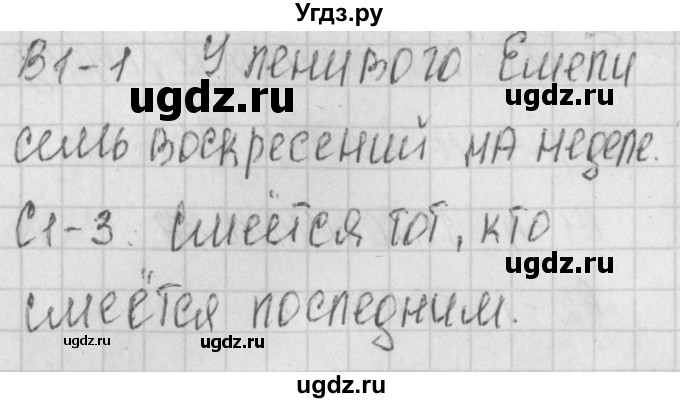 Угдз.ру
В1-1 У ленивого Емели
ugdz.ru ugdz.ru
семь воскресений на неделе.
С1-3. Смеётся тот, кто
ugdz.ru
смеётся последним.
ugdz.ru ugdz.ru ugdz.ru
ugdz.ru